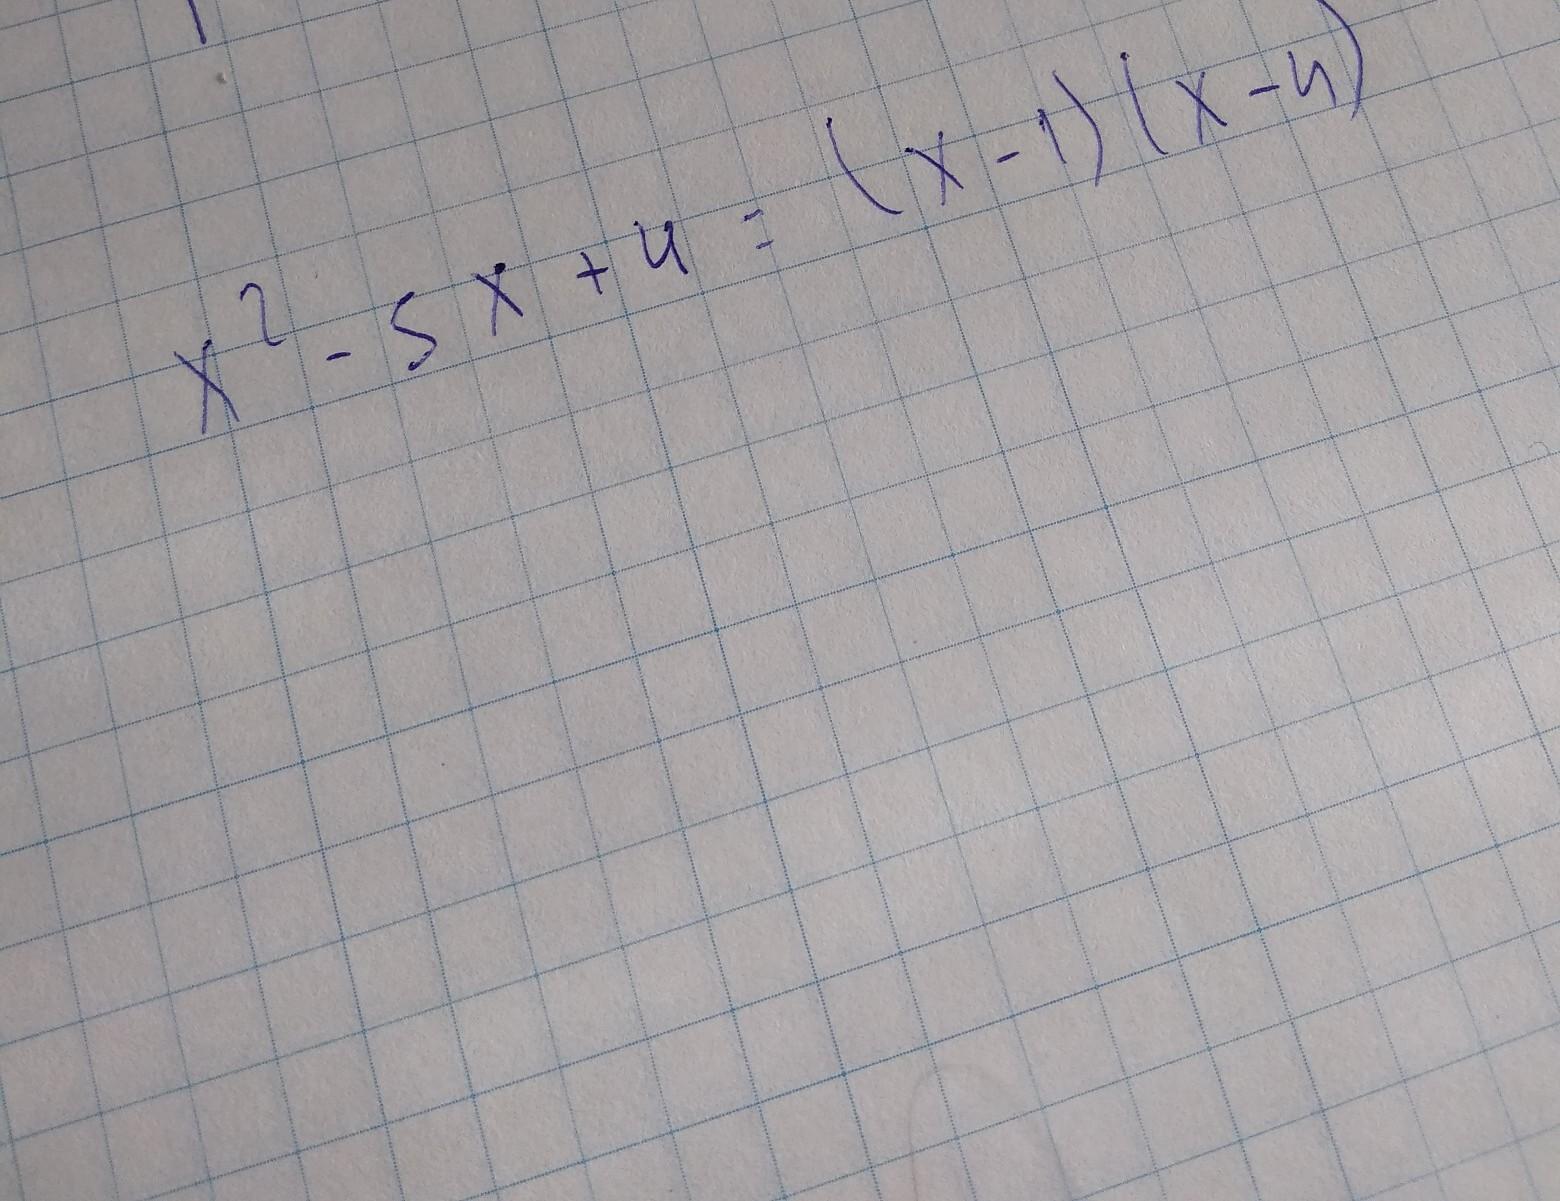 x² - 5x + 4 = (x - 1)(x - 4)